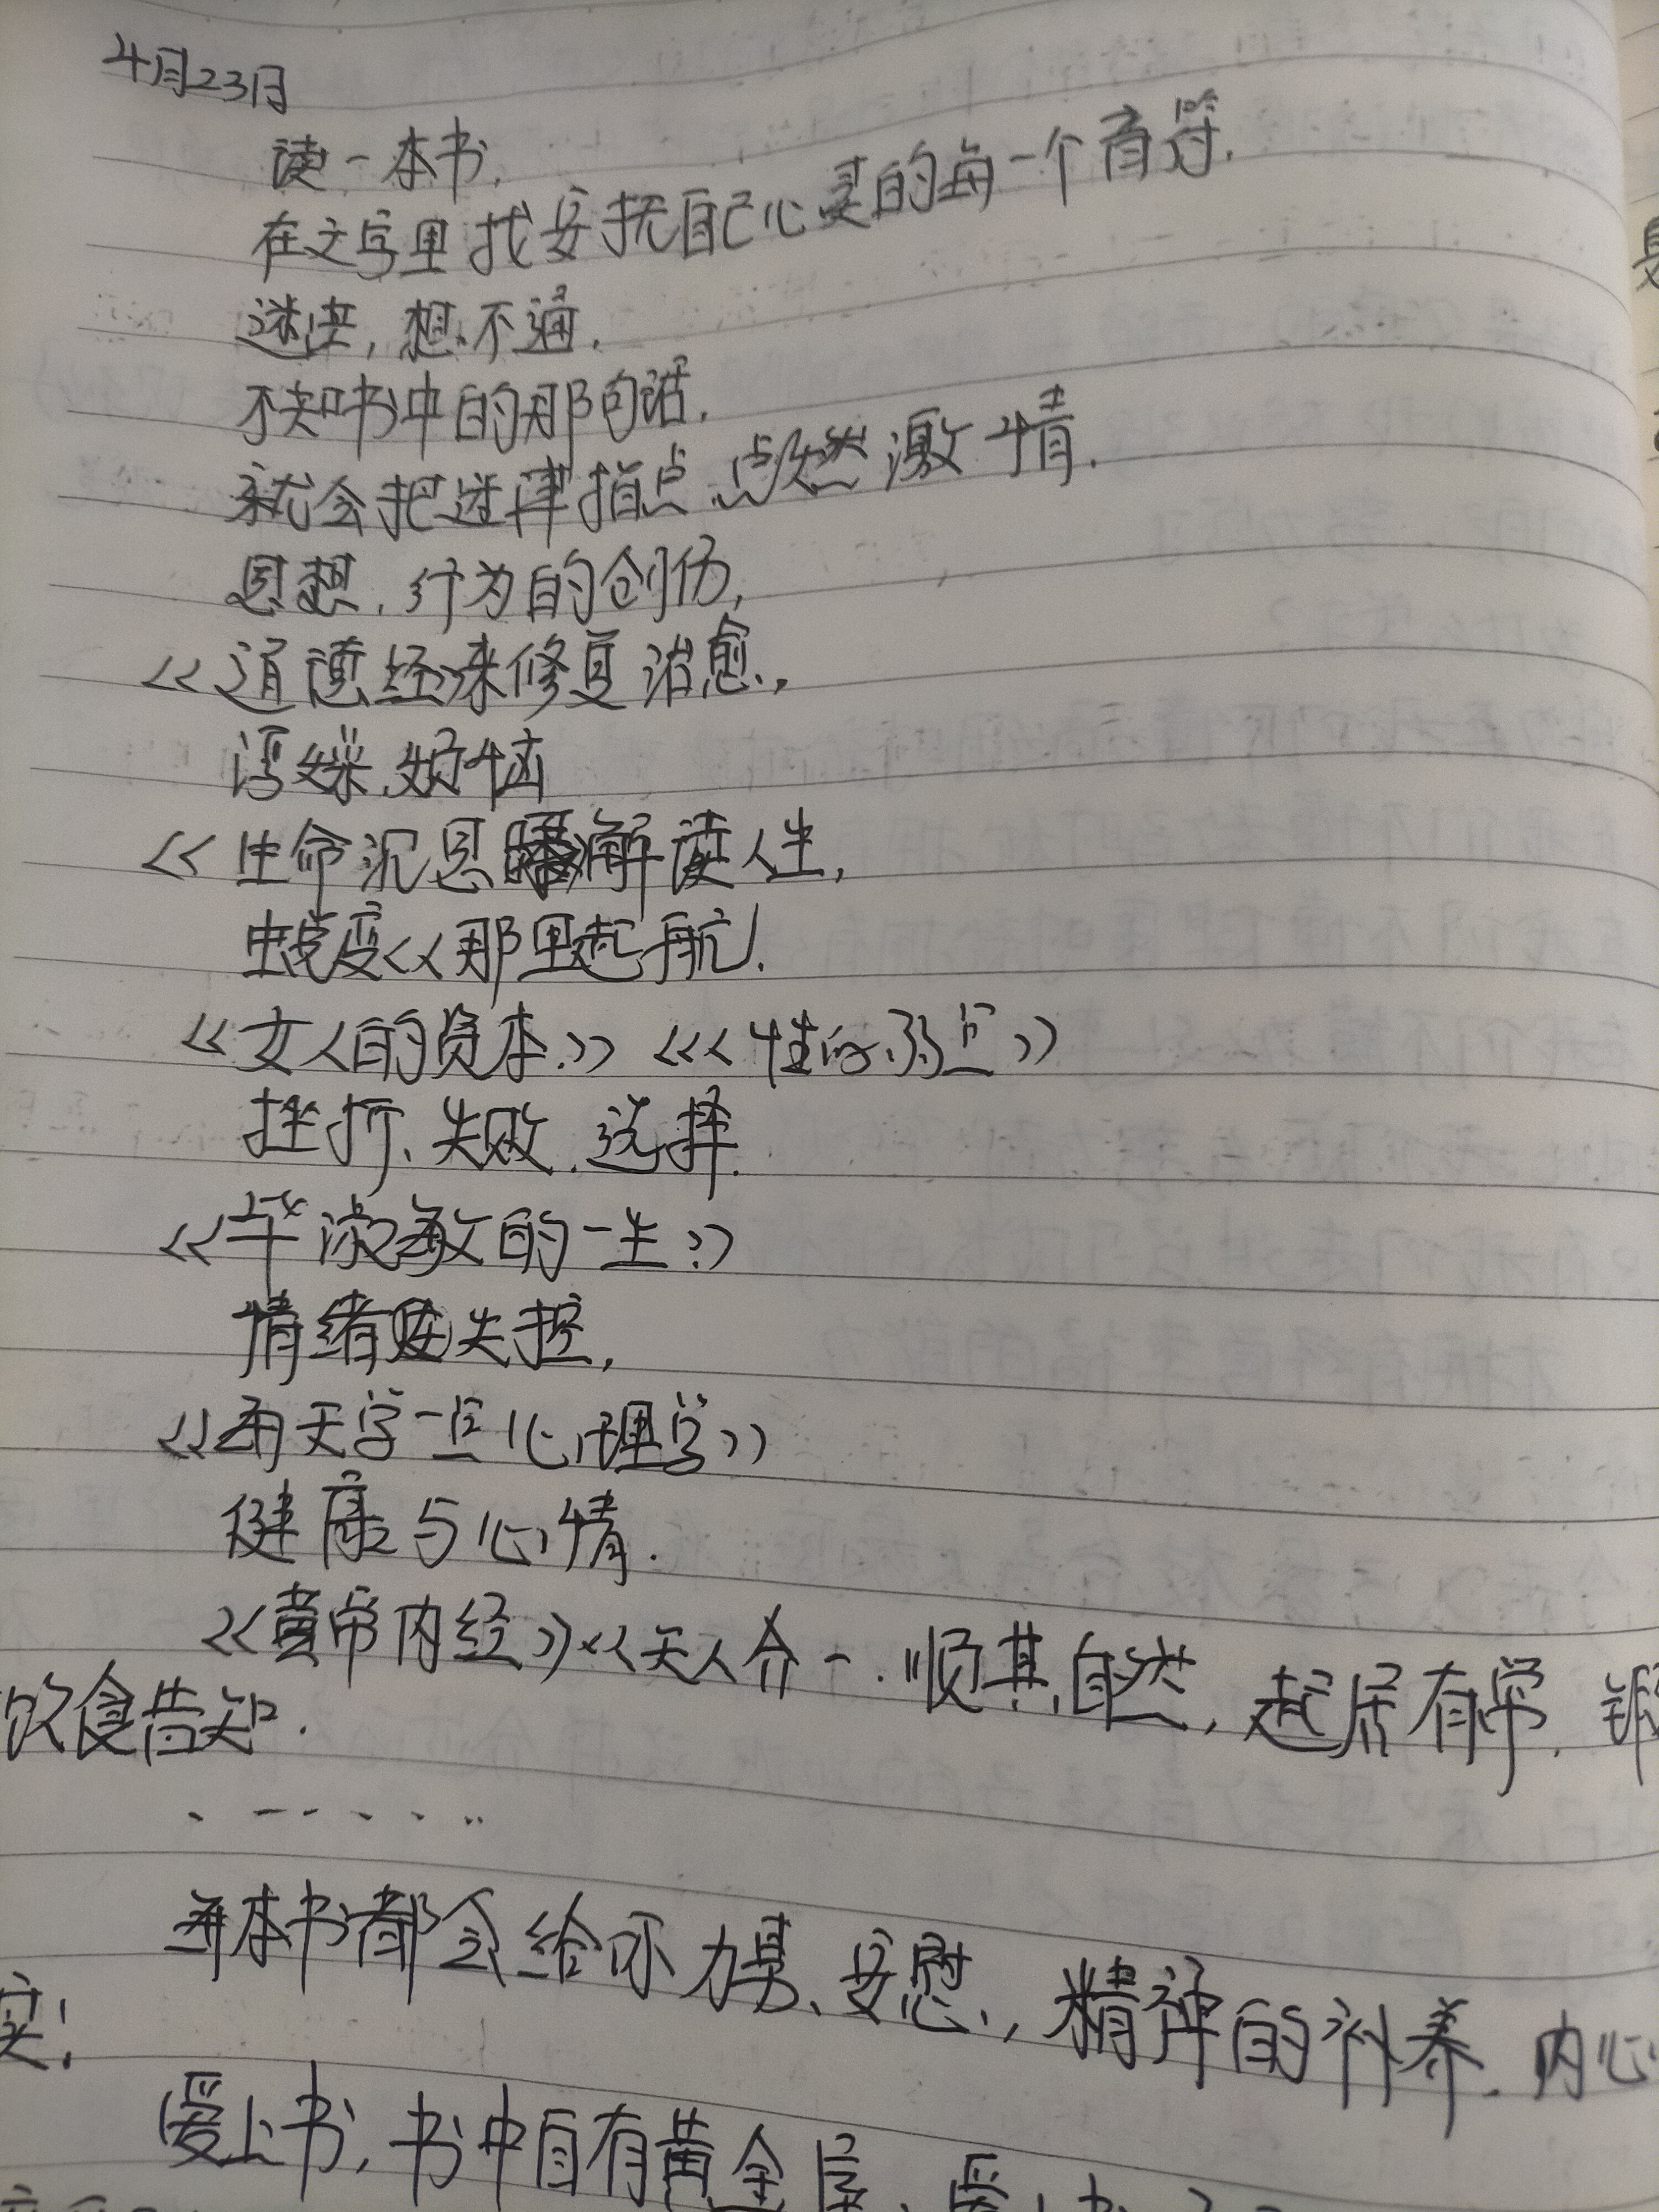 4月23日
读一本书,
在文字里找安抚自己心灵的每一个音符.
迷茫,想不通.
不知书中的那句话,
就会把迷津指点.点燃激情.
思想.行为的创伤,
<<道德经>>来修复治愈.,
婚姻.烦恼
<<生命沉思 解读人生,
蜕变<<那里起航!
<<女人的资本>> <<<性的弱点>>
挫折、失败.选择.
<<华淑敏的一生>>
情绪 失控,
<<每天学一点心理学>>
健康与心情.
<<黄帝内经>><<天人合一.顺其自然,起居有常.
饮食告知.
.......
每本书都会给你力量、安慰.,精神的补养.内心
实!
爱上书,书中自有黄金屋,爱上书